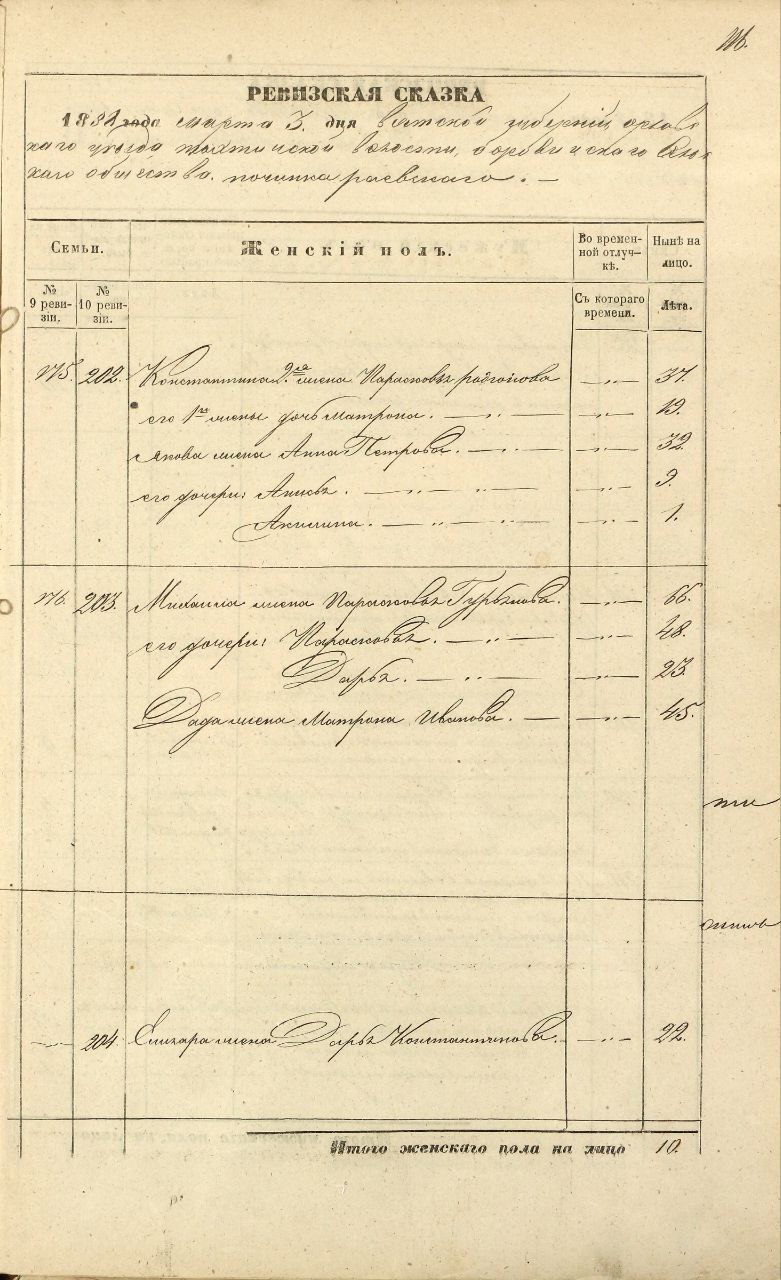 РЕВИЗСКАЯ СКАЗКА
года марта 3. дня Вятской губернiи, орловс
каго уезда волости,
каго общества. починка раевскаго. —
Семьи.
Женскiй полъ.
Во времен-
ной отлуч-
кѣ.
Нынѣ на
лицо.
№
9 реви-
зiи.
№
10 реви-
зiи.
Съ котораго
времени.
Лѣта.
175. 202. Константина 2ая жена Парасковья — „ — 37.
его 1ой жены дочь матрона. — „ — — „ — 19.
Якова жена Анна Петрова. — „ — — „ — 32.
его дочери: — „ — — „ — 9.
Акилина. — „ — „ — — „ — 1.
176. 203. Михаила жена Парасковья Гурьянова. — „ — 66.
его дочери: Парасковья. — „ — — „ — 48.
Дарья. — „ — — „ — 23.
жена Матрона Иванова. — — „ — 45.
— 204. Елизара жена Дарья Константинова. — — „ — 22.
Итого женскаго пола на лицо 10.